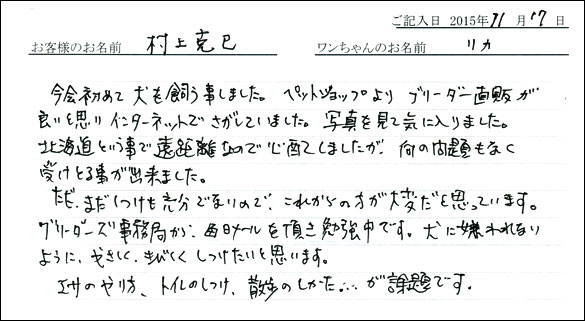 ご記入日 2015年 11月 17日
お客様のお名前 村上克巳 ワンちゃんのお名前 リカ
今会初めて犬を飼う事しました。ペットショップよりブリーダー直販が
良いと思いインターネットでさがしていました。写真を見て気に入りました。
北海道という事で遠距離なので心配でしましたが、何の問題もなく
受けとる事が出来ました。
ただ、まだしつけも充分でないので、これからの方が大変だと思っています。
ブリーダーズ事務局から、毎日メールを頂き勉強中です。犬に嫌われない
ように、やさしく、きびしくしつけたいと思います。
エサのやり方、トイレのしつけ、散歩のしかた…が課題です。